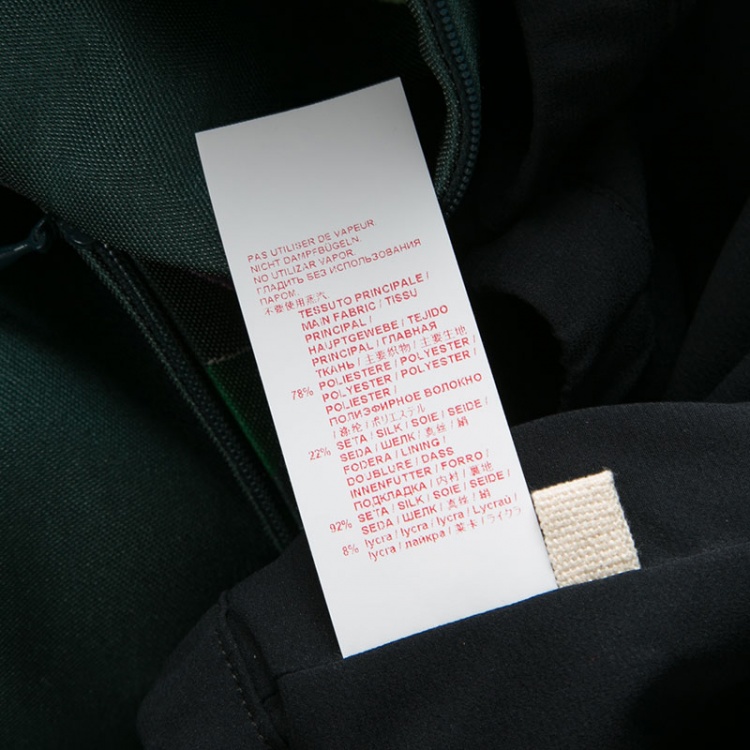 PAS UTILISER DE VAPEUR
NICHT DAMPFBÜGELN.
NO UTILIZAR VAPOR.
ГЛАДИТЬ БЕЗ ИСПОЛЬЗОВАНИЯ
ПАРОМ.
不要使用蒸汽.
TESSUTO PRINCIPALE /
MAIN FABRIC / TISSU
PRINCIPAL /
HAUPTGEWEBE / TEJIDO
PRINCIPAL / ГЛАВНАЯ
ТКАНЬ / 主要织物 / 主要生地
78% POLIESTERE / POLYESTER /
POLYESTER / POLYESTER /
POLIESTER /
ПОЛИЭФИРНОЕ ВОЛОКНО
/ 涤纶 / ポリエステル
22% SETA / SILK / SOIE / SEIDE /
SEDA / ШЕЛК / 真丝 / 絹
FODERA / LINING /
DOJBLURE / DASS
INNENFUTTER / FORRO /
ПОДКЛАДКА / 内衬 / 裏地
92% SETA / SILK / SOIE / SEIDE /
SEDA / ШЕЛК / 真丝 / 絹
8% lycra / lycra / lycra / Lycraй /
lycra / лайкра / 莱卡 / ライクラ